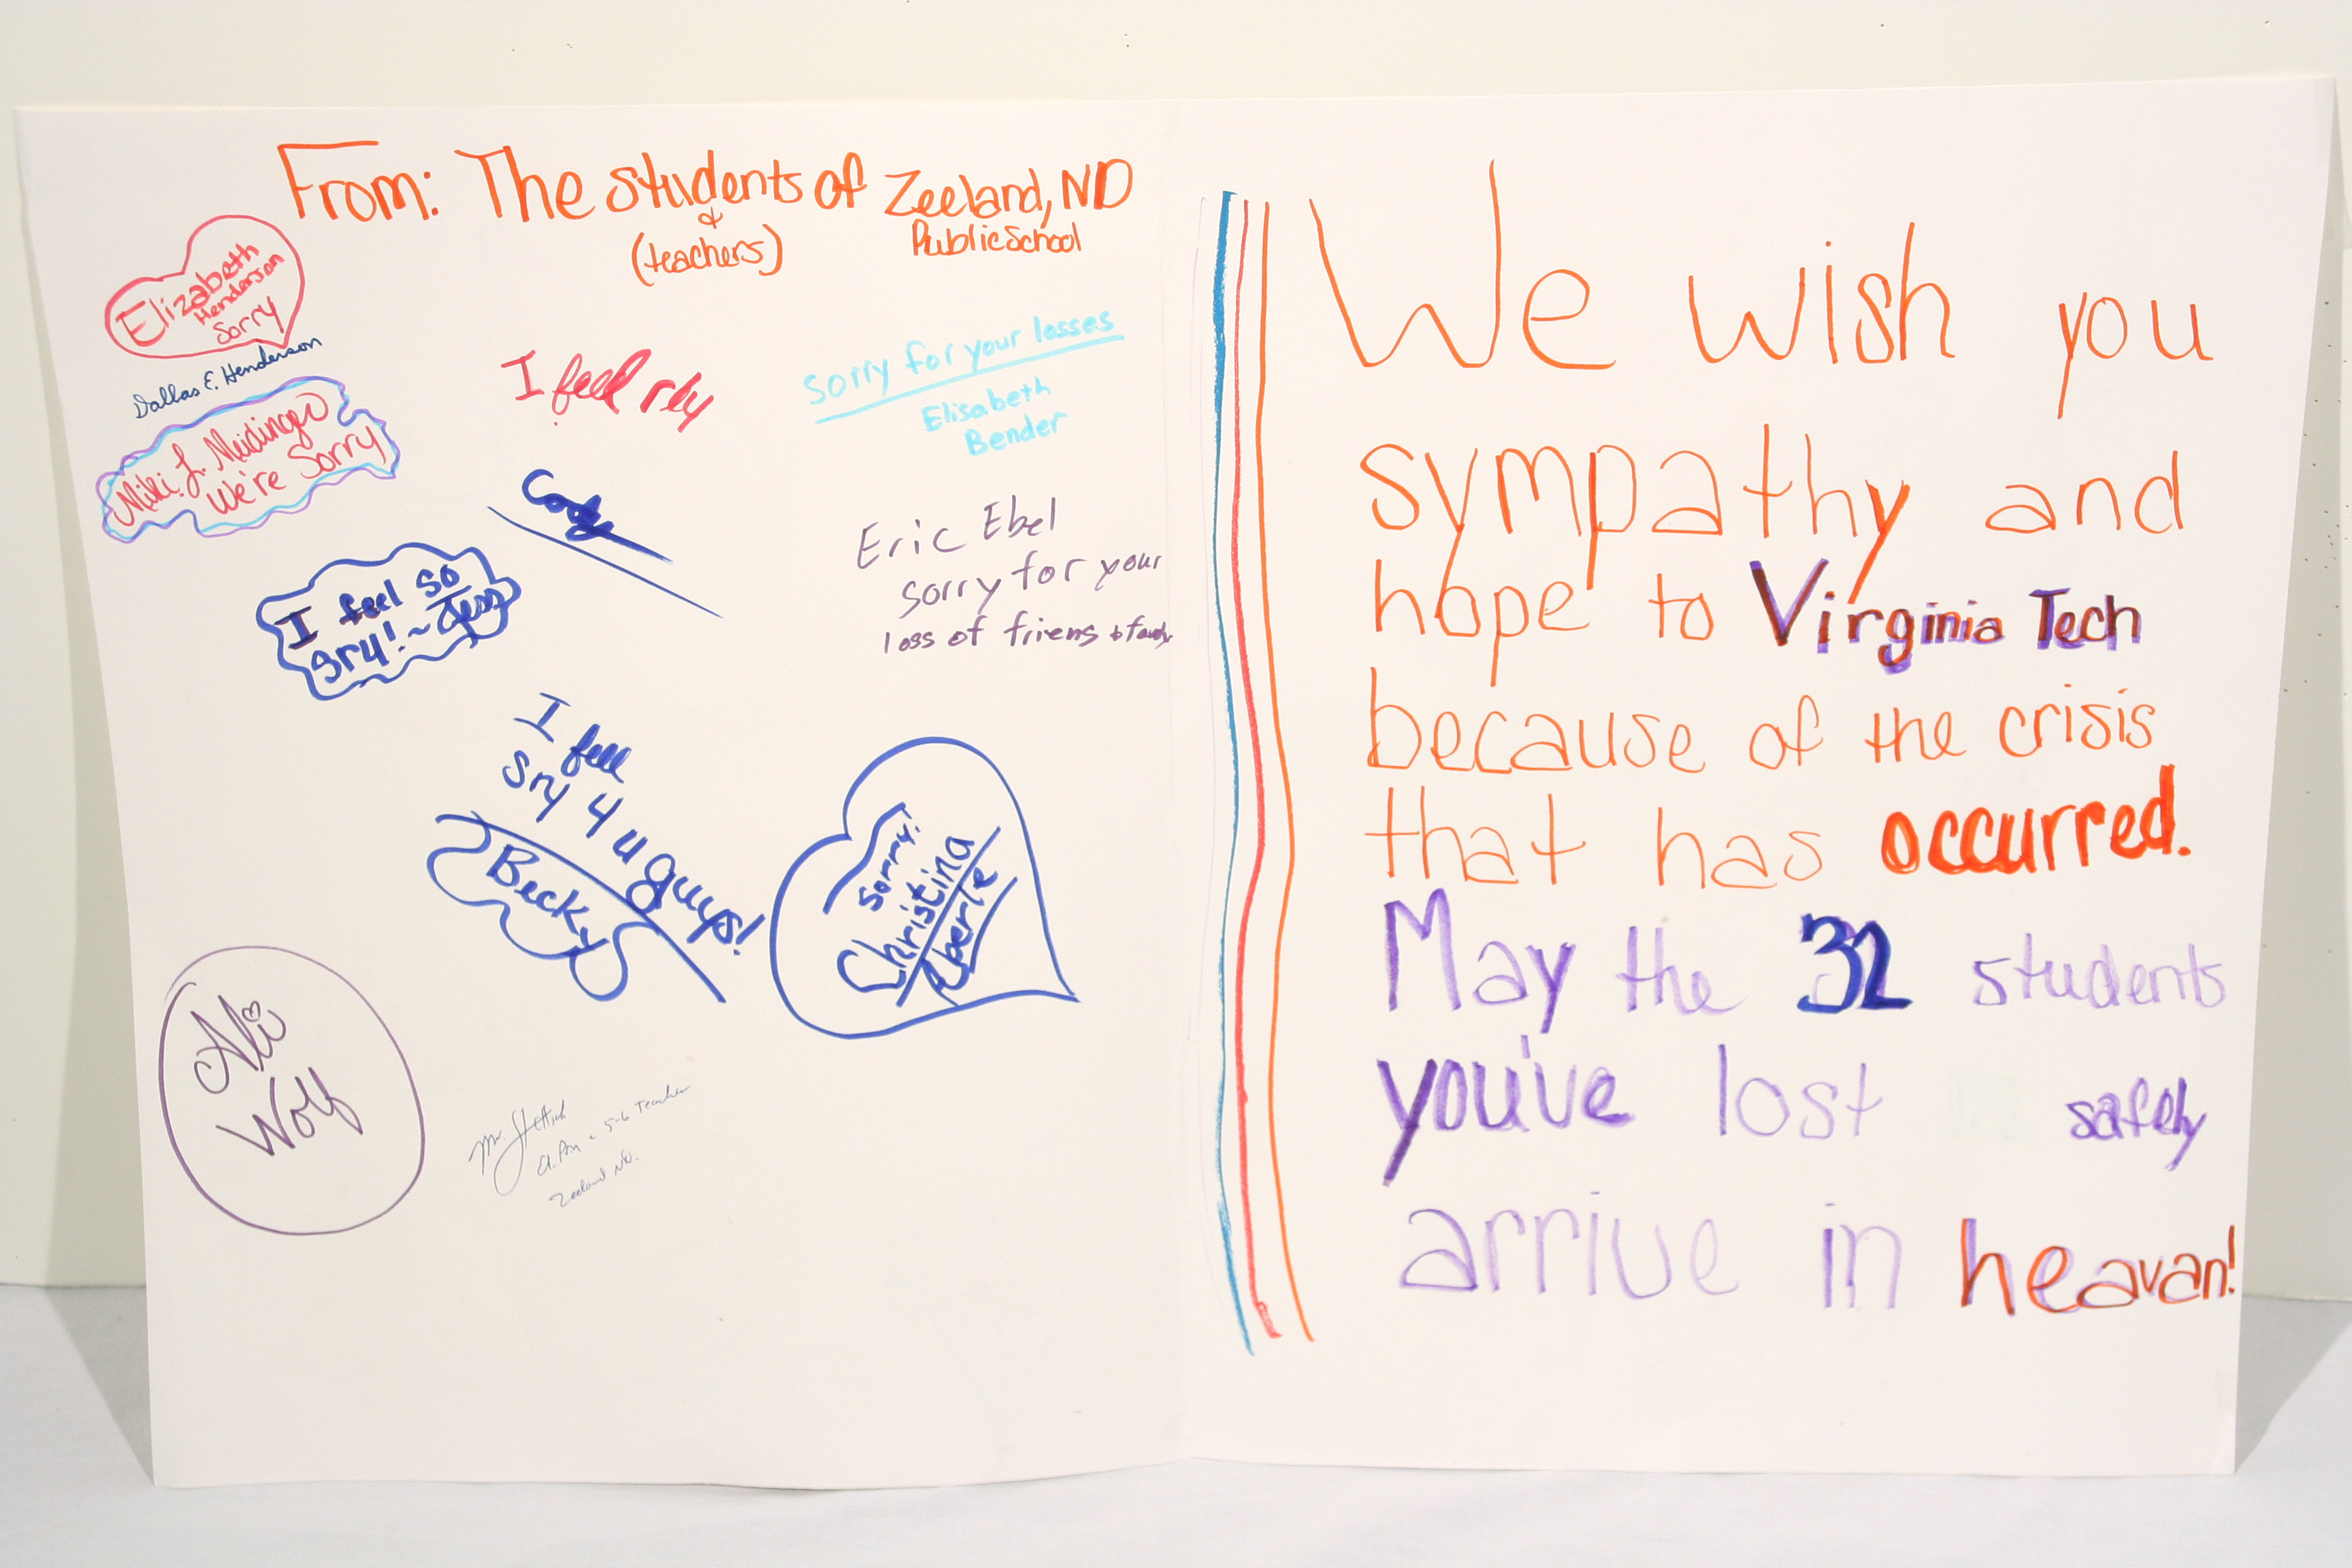 From: The students of Zeeland, ND
& Public School
(teachers)
Elizabeth
Henderson
Sorry
Dallas E. Henderson
Miki L. Meidinger
We're Sorry
I feel
sorry for your losses
Elisabeth
Bender
Eric Ebel
sorry for your
loss of friens &
I feel so
sry! ~ Jess
I feel
sry 4 u guys!
Becky
sorry!
Christina
Eberle
Ali
Wolf
Mr.
5-6 Teacher
Zeeland ND.
We wish you
sympathy and
hope to Virginia Tech
because of the crisis
that has occurred.
May the 32 students
you've lost safely
arrive in heavan!